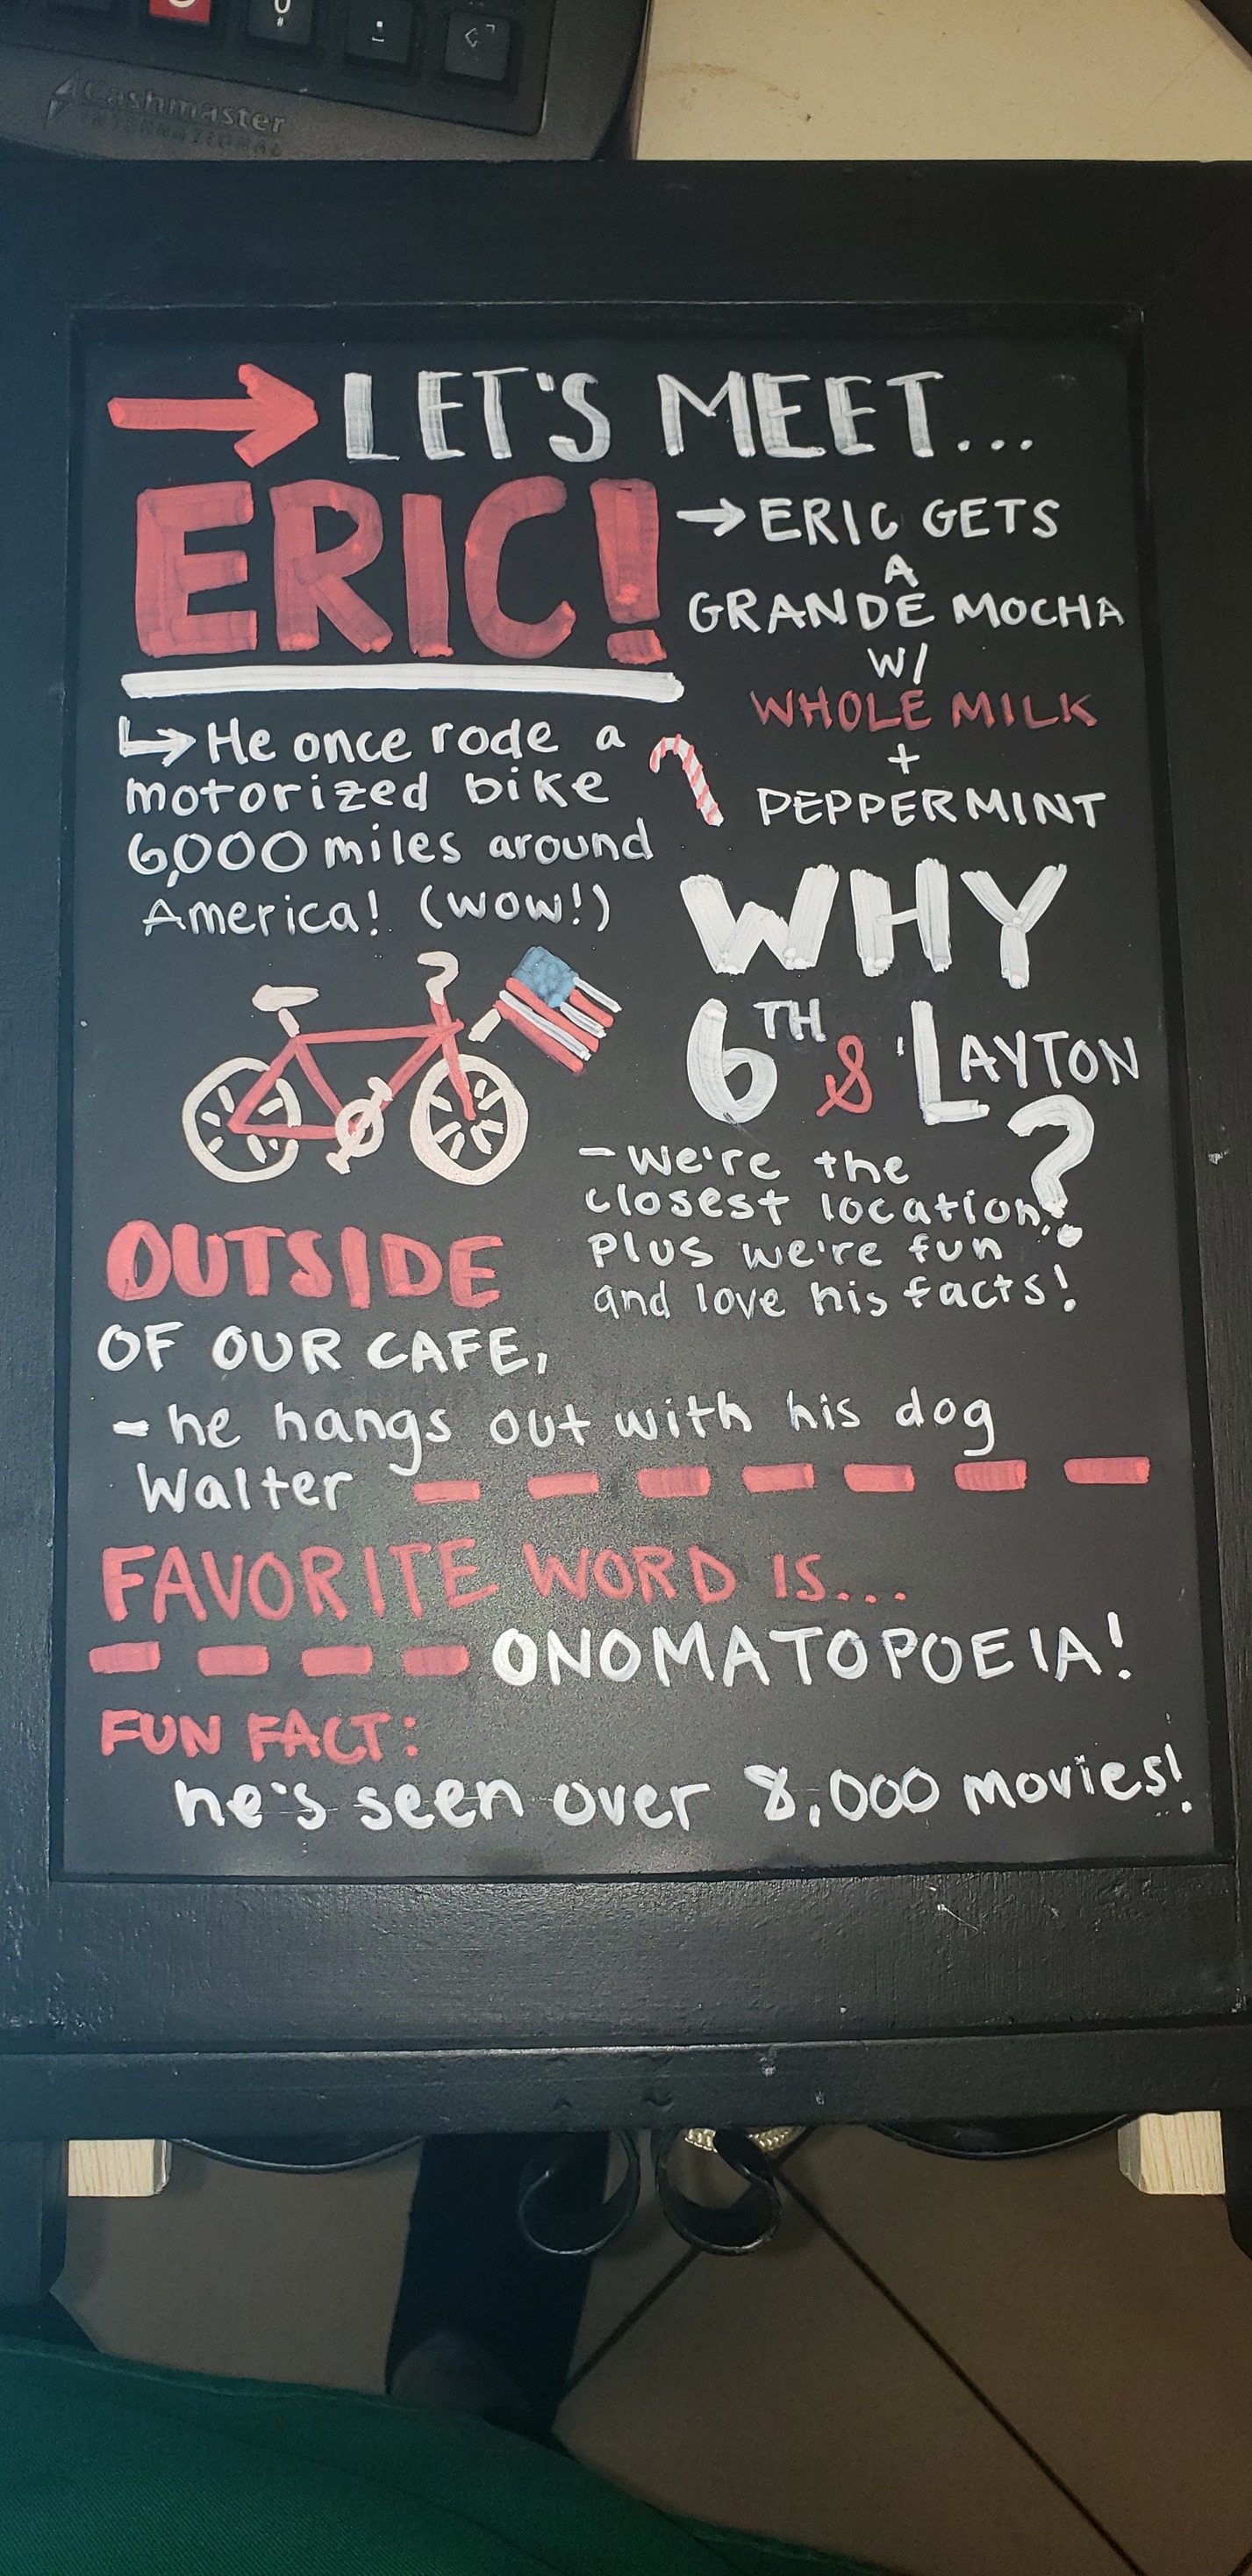 Cashmaster
INTERNATIONAL
LET'S MEET...
ERIC!
He once rode a
motorized bike
6,000 miles around
America! (wow!)
→ ERIC GETS
A
GRANDE MOCHA
W/
WHOLE MILK
+
PEPPERMINT
WHY
6TH & LAYTON
?
- we're the
closest location!
Plus we're fun
and love his facts!
OUTSIDE
OF OUR CAFE,
- he hangs out with his dog
Walter
FAVORITE WORD IS...
ONOMATOPOEIA!
FUN FACT:
he's seen over 8,000 movies!